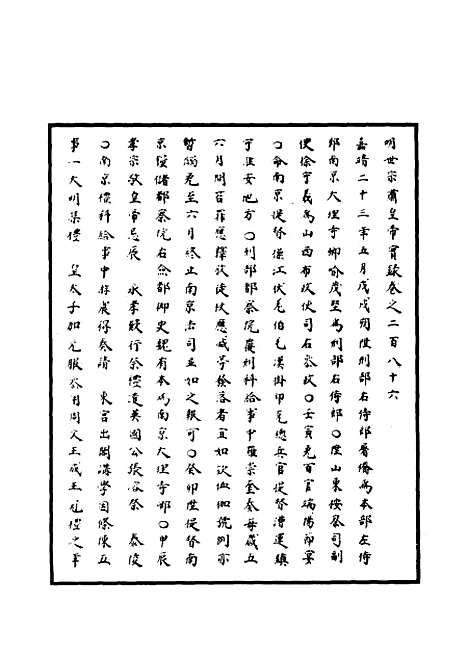 明世宗肅皇帝實錄卷之二百八十六
嘉靖二十三年五月戊戌朔陞刑部右侍郎屠僑為本部左侍
郎南京大理寺卿俞茂堅為刑部右侍郎○陞山東按察司副
使徐守義為山西布政使司右參政○壬寅免百官端陽節宴
○命南京提督操江伏羌伯毛漢掛印充總兵官提督漕運鎮
守淮安地方○刑部都察院廣刑科給事中羅崇奎奏每歲五
六月間笞罪應釋放徒杖應減等發落者宜如故血枷號例亦
暫蠲免至六月終止南京法司並如之報可○癸卯陞提督南
京糧儲都察院右僉都御史魏有本為南京大理寺卿○甲辰
孝宗敬皇帝忌辰　永孝殿行祭禮遣英國公張溶祭　泰陵
○南京禮科給事中游震得奏請　東宮出閣講學因條陳五
事一大明集禮　皇太子加元服參用周文王成王冠禮之年